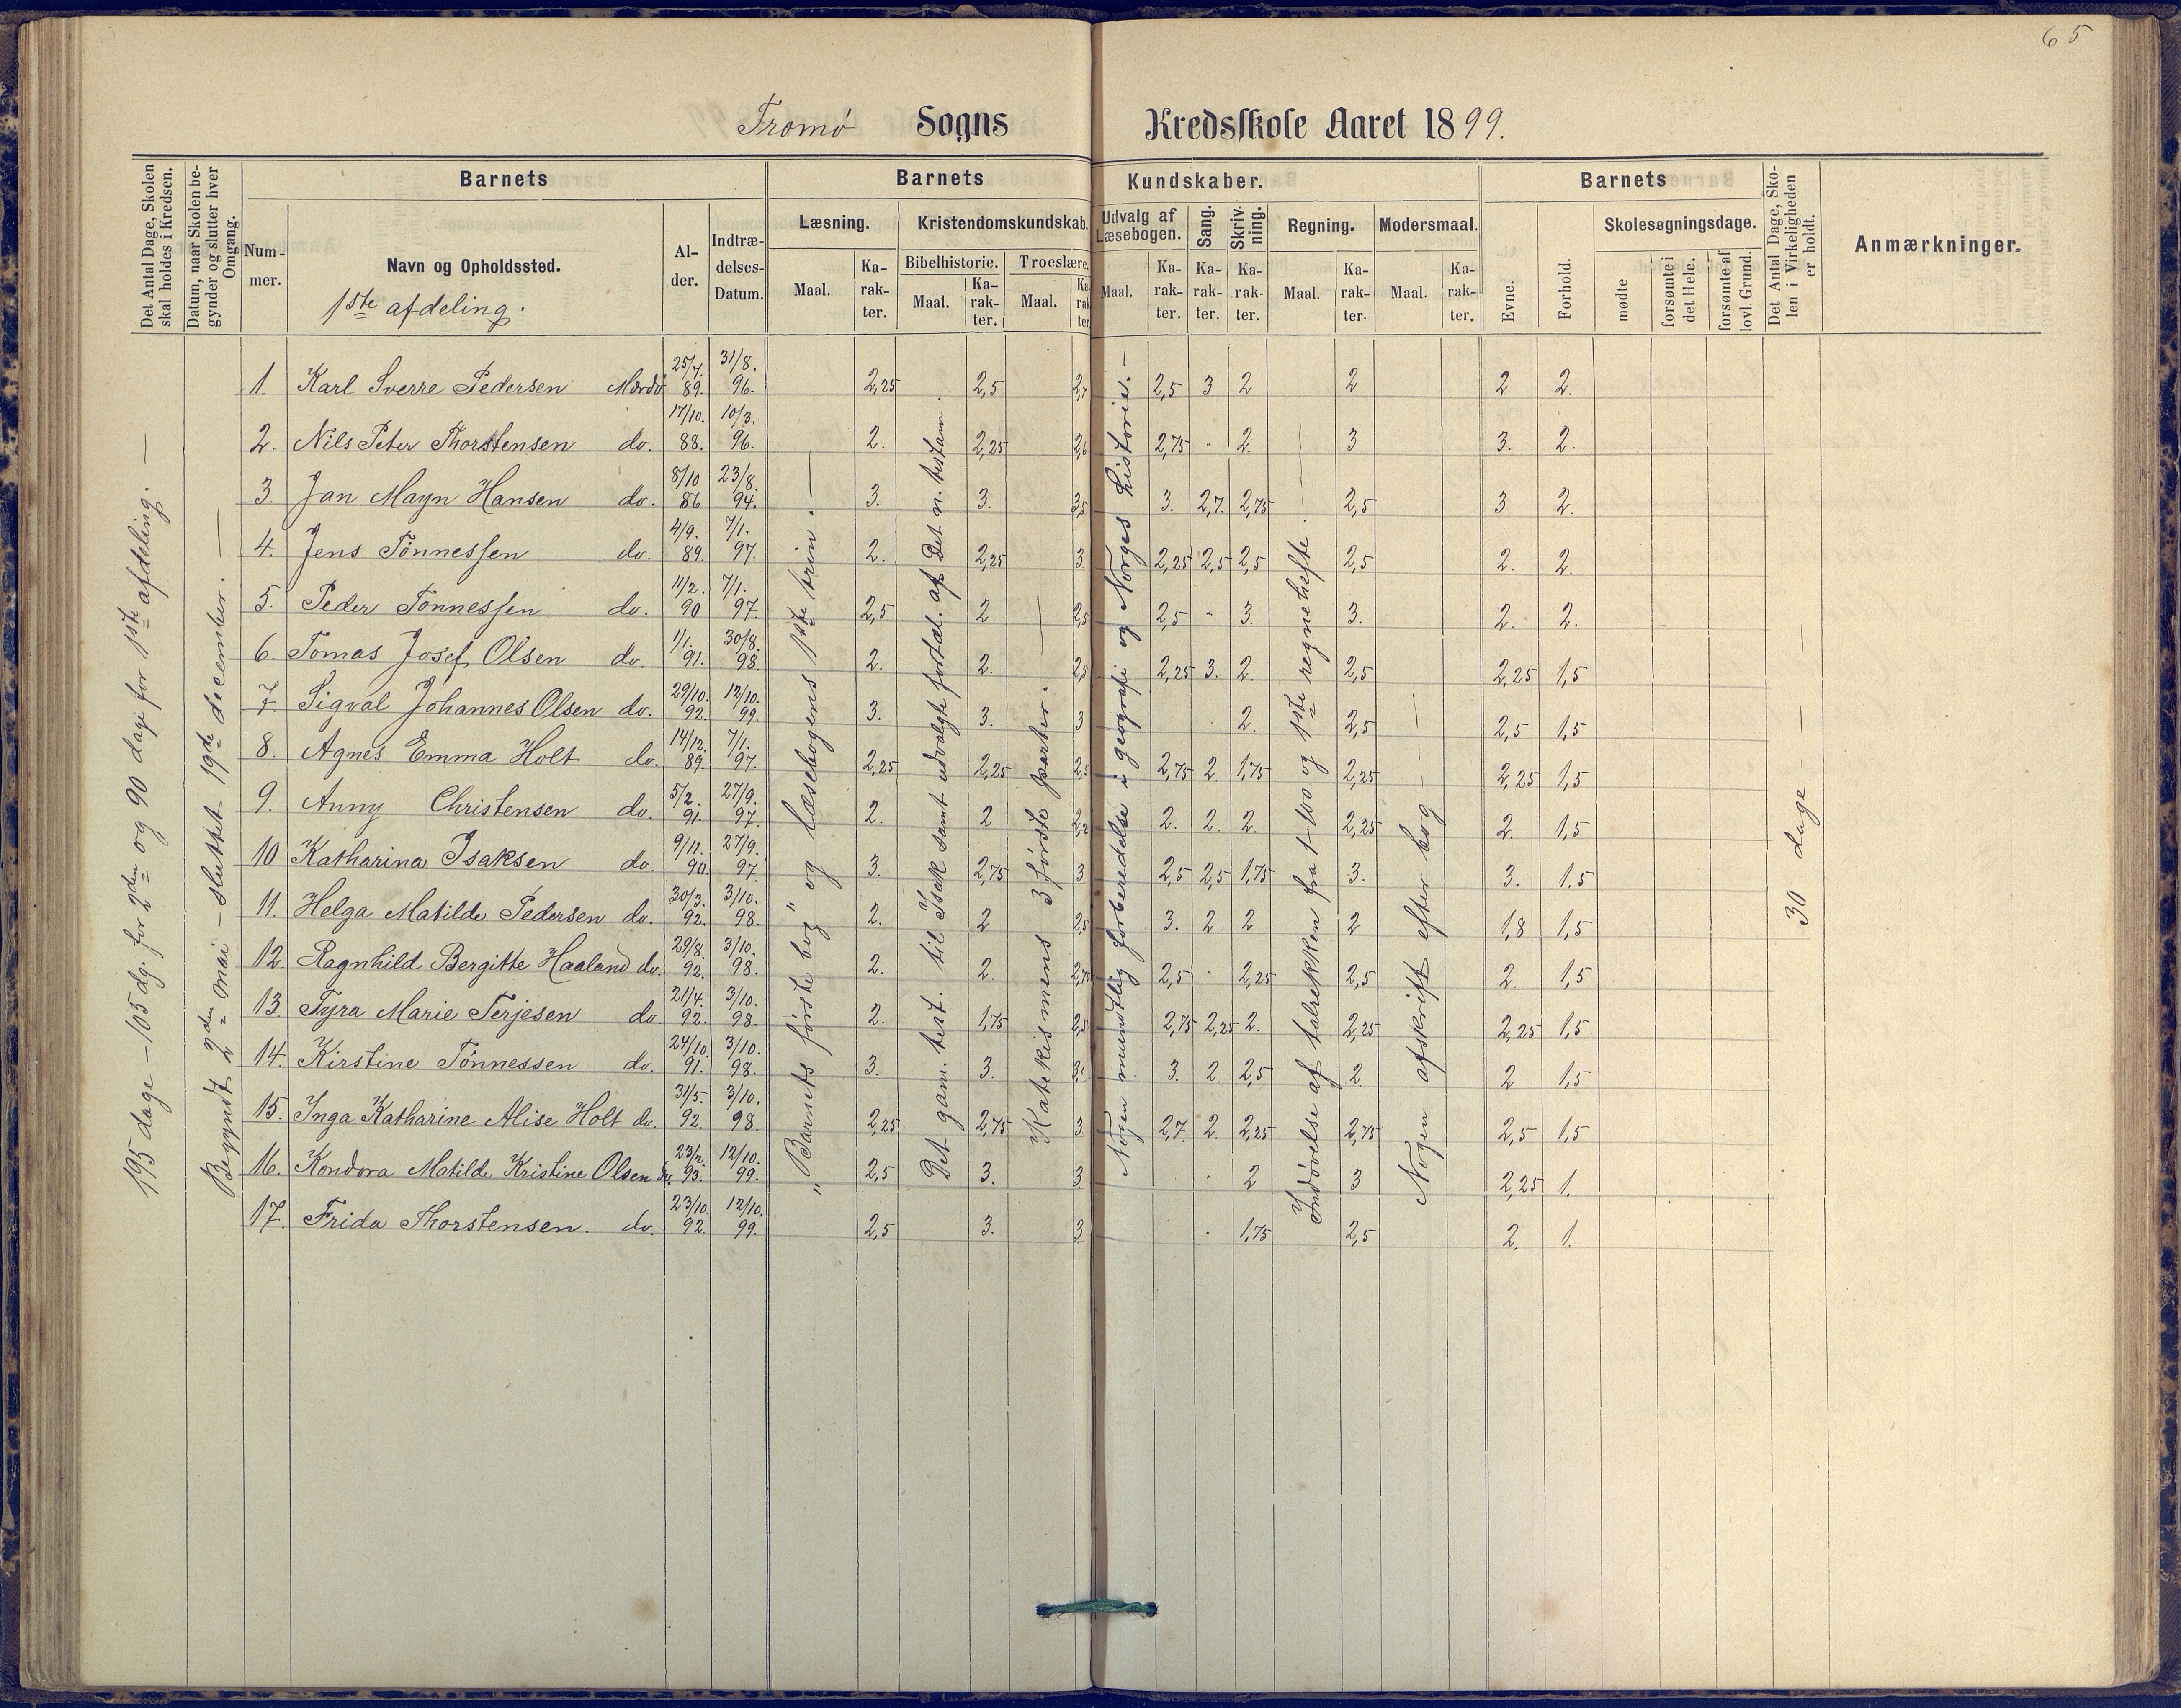 65
Tromø Sogns Kredsskole Aaret 1899.
Det Antal Dage, Skolen skal holdes i Kredsen.
Datum, naar Skolen begynder og slutter hver Omgang.
Barnets
Nummer.
Navn og Opholdssted.
1ste afdeling.
Alder.
Indtrædelses-Datum.
Barnets Kundskaber.
Læsning.
Maal.
Karakter.
Kristendomskundskab.
Bibelhistorie.
Maal.
Karakter.
Troeslære.
Maal.
Karakter.
Udvalg af Læsebogen.
Maal.
Karakter.
Sang.
Karakter.
Skrivning.
Karakter.
Regning.
Maal.
Karakter.
Modersmaal.
Maal.
Karakter.
Barnets
Evne.
Forhold.
Skolesøgningsdage.
mødte
forsømte i det Hele.
forsømte af lovl. Grund.
Det Antal Dage, Skolen i Virkeligheden er holdt.
Anmærkninger.
195 dage – 105 dg. for 2den og 90 dage for 1ste afdeling. —
Begyndt 2den mai – sluttet 19de december. —
"Barnets første bog" og læsebogens 1ste trin. —
Det gam. test. til Isak samt udvalgte fortæl. af Det n. testam.
Katekismens 3 første parter. —
Nogen mundtlig forberedelse i geografi og Norges historie. —
Indøvelse af talrekken fra 1–100 og 1ste regnehefte. —
Nogen afskrift efter bog — —
30 dage — —
1. Karl Sverre Pedersen Mærdø 25/7. 89. 31/8. 96. 2,25 2,5 2,7 2,5 3 2 2 2 2.
2. Nils Peter Thorstensen do. 17/10. 88. 10/3. 96. 2. 2,25 2,6 2,75 - 2. 3 3. 2.
3. Jan Mayn Hansen do. 8/10 86 23/8. 94. 3. 3. 3,5 3. 2,7. 2,75 2,5 3 2.
4. Jens Tönnessen do. 4/9. 89. 7/1. 97. 2. 2,25 3. 2,25 2,5 2,5 2,5 2. 2.
5. Peder Tönnessen do. 11/2. 90 7/1. 97. 2,5 2 2,5 2,5 - 3. 3. 2. 2.
6. Tomas Josef Olsen do. 1/1. 91. 30/8. 98. 2. 2. 2,5 2,25 3. 2. 2,5 2,25 1,5
7. Sigval Johannes Olsen do. 29/10. 92. 12/10. 99. 3. 3. 3 2. 2,5 2,5 1,5
8. Agnes Emma Holt do. 14/12. 89. 7/1. 97. 2,25 2,25 2,5 2,75 2. 1,75 2,25 2,25 1,5
9. Anny Christensen do. 5/2. 91. 27/9. 97. 2. 2 2. 2. 2. 2,25 2. 1,5
10 Katharina Isaksen do. 9/11. 90. 27/9. 97. 3. 2,75 3 2,5 2,5 1,75 3. 3. 1.5
11. Helga Matilde Pedersen do. 30/3. 92. 3/10. 98. 2. 2 2,5 3. 2 2 2 1,8 1,5
12. Ragnhild Bergitte Haaland do. 29/8. 92. 3/10. 98. 2. 2. 2,75 2,5 - 2,25 2,5 2. 1,5
13. Tyra Marie Terjesen do. 21/4. 92. 3/10. 98. 2. 1,75 2,5 2,75 2,25 2. 2,25 2,25 1,5
14. Kirstine Tönnessen do. 24/10. 91. 3/10. 98. 3. 3. 3. 2. 2,5 2. 2 1,5
15. Inga Katharine Alise Holt do. 31/5. 92. 3/10. 98. 2,25 2,75 3 2,7. 2. 2,25 2,75 2,5 1,5
16. Kondora Matilde Kristine Olsen do. 23/2. 93. 12/10. 99. 2,5 3. 3 - 2 3 2,25 1.
17. Frida Thorstensen. do. 23/10. 92. 12/10. 99. 2,5 3. 3 - 1,75 2,5 2. 1.